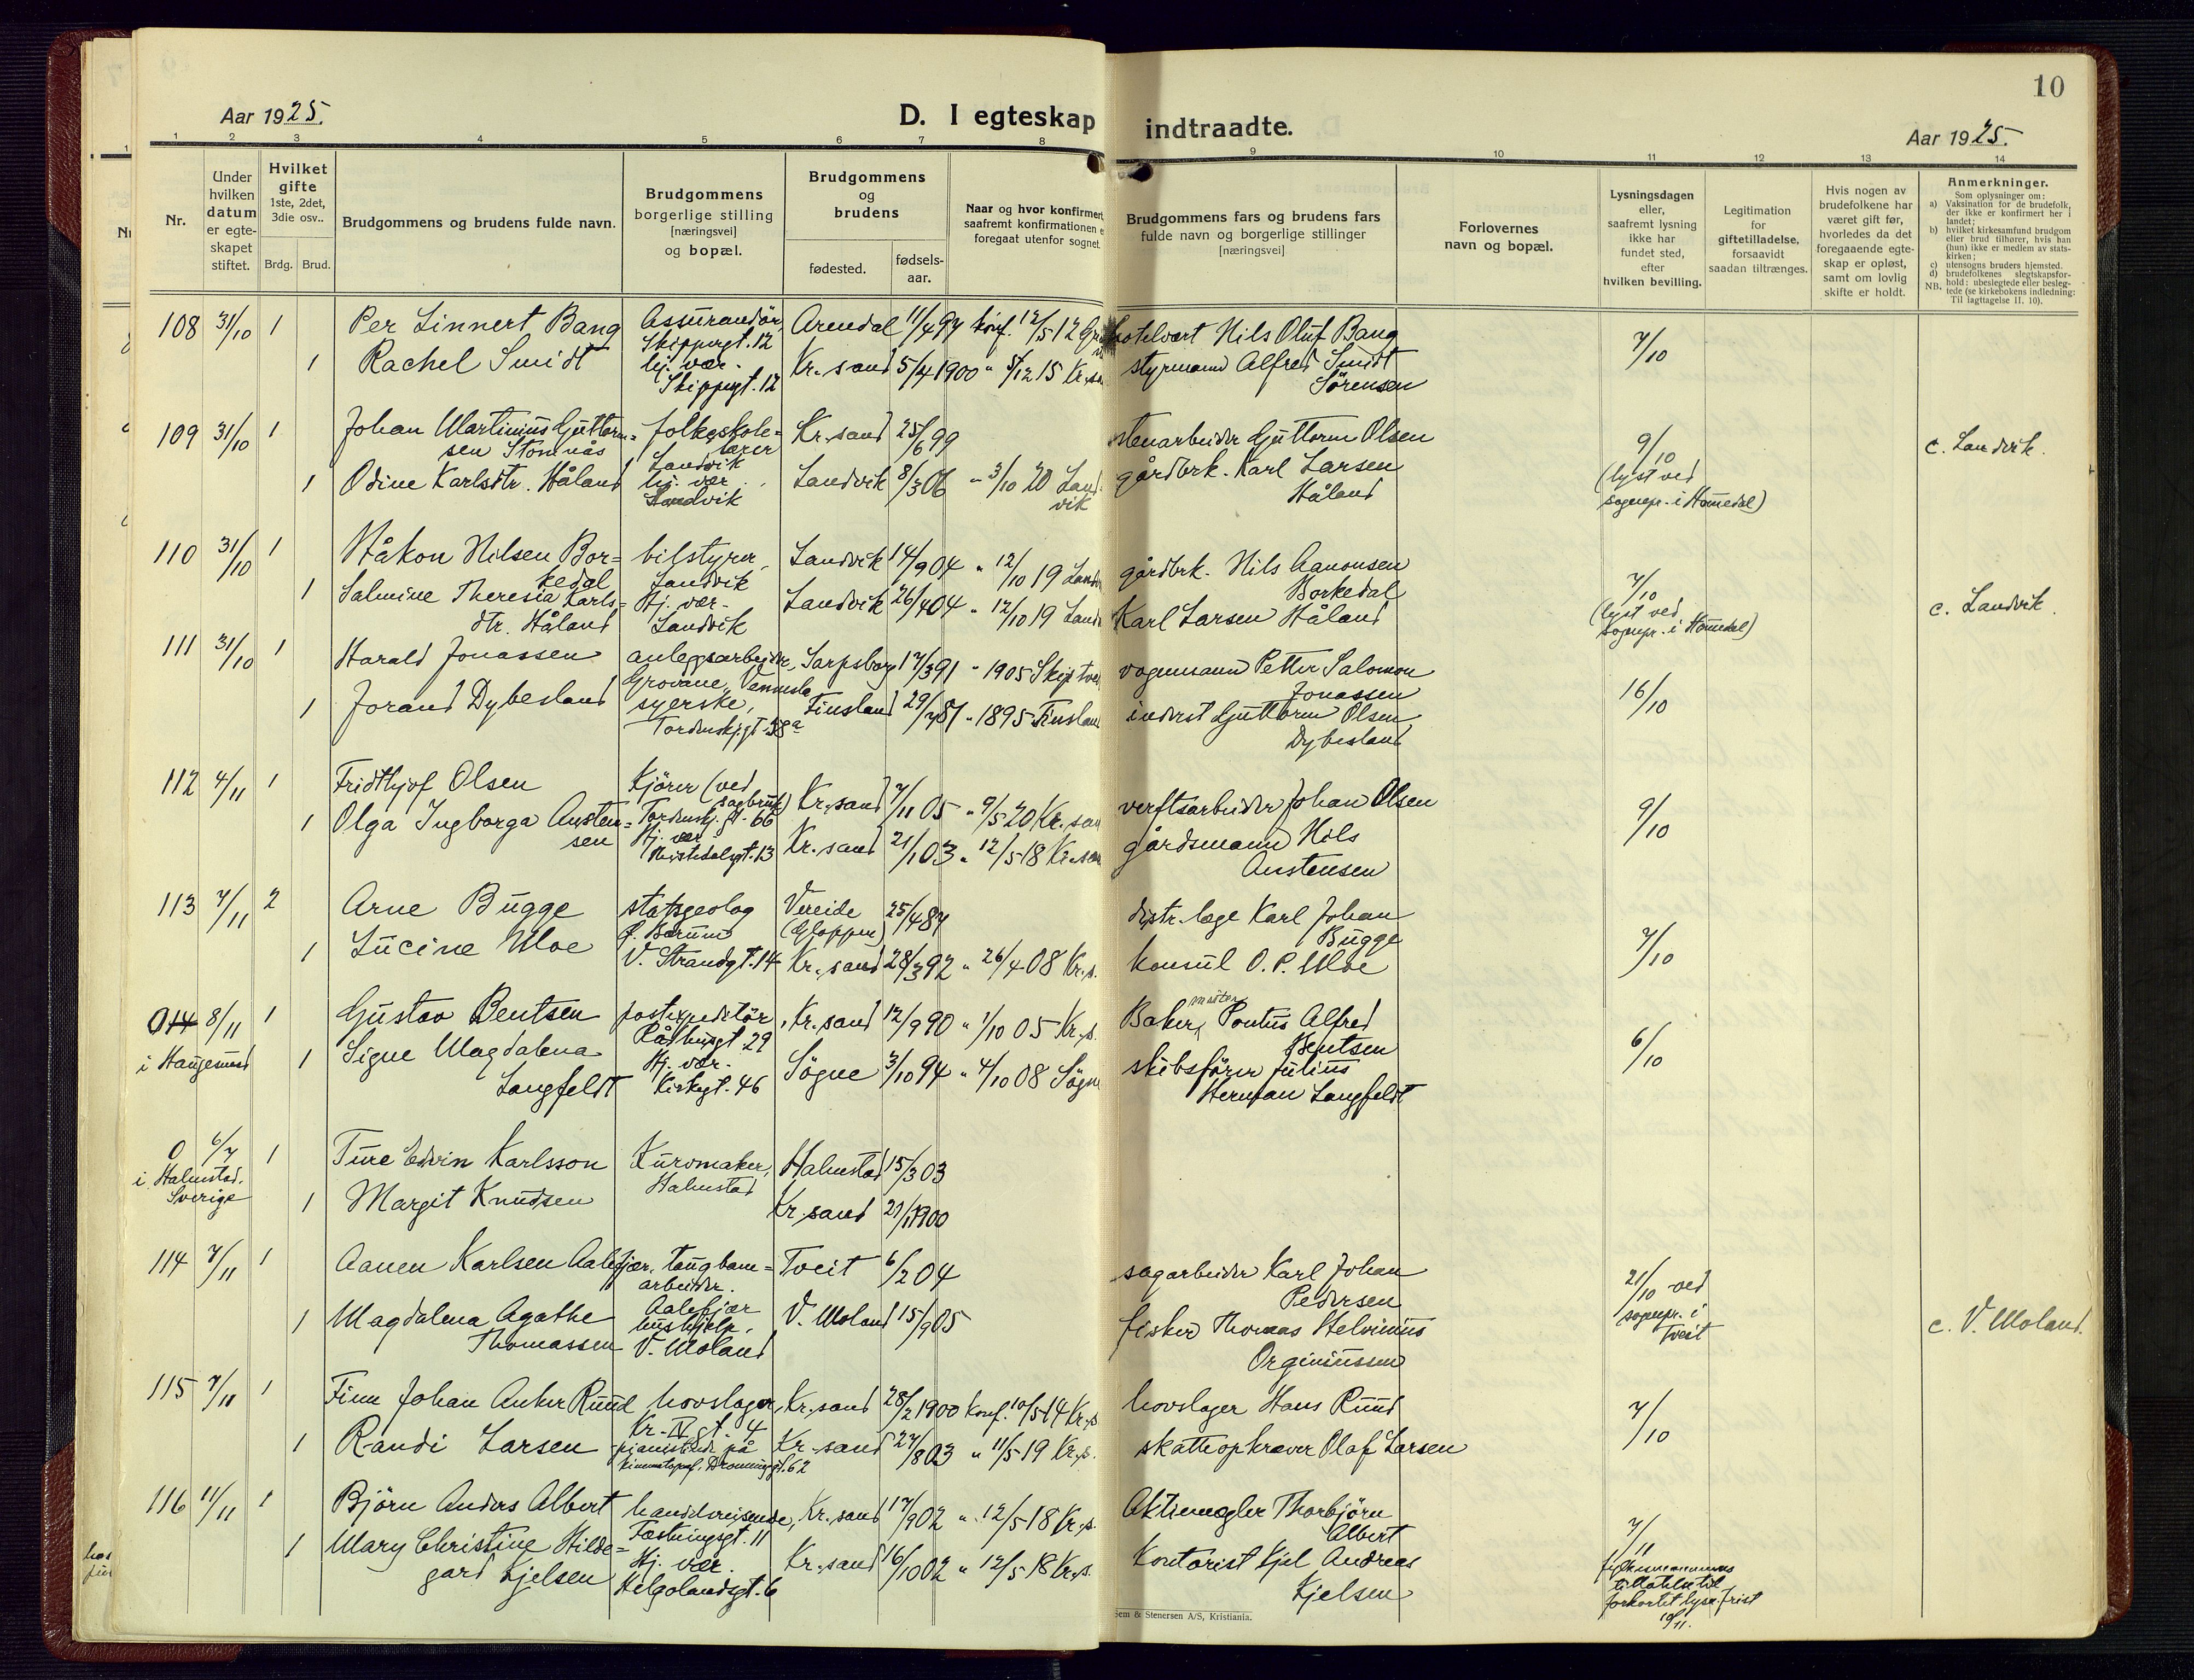 10
Aar 1925.
D. I egteskap indtraadte.
Aar 1925.
1 2 3 4 5 6 7 8 9 10 11 12 13 14
Nr.
Under hvilken datum er egteskapet stiftet.
Hvilket gifte 1ste, 2det, 3die osv..
Brdg. Brud.
Brudgommens og brudens fulde navn.
Brudgommens borgerlige stilling [næringsvei] og bopæl.
Brudgommens og brudens
fødested.
fødsels-aar.
Naar og hvor konfirmert
saafremt konfirmationen e
foregaat utenfor sognet.
Brudgommens fars og brudens fars
fulde navn og borgerlige stillinger
[næringsvei]
Forlovernes
navn og bopæl.
Lysningsdagen
eller,
saafremt lysning
ikke har
fundet sted,
efter
hvilken bevilling.
Legitimation
for
giftetilladelse,
forsaavidt
saadan tiltrænges.
Hvis nogen av
brudefolkene har
været gift før,
hvorledes da det
foregaaende egte-
skap er opløst,
samt om lovlig
skifte er holdt.
Anmerkninger.
Som oplysninger om:
a) Vaksination for de brudefolk, der ikke er konfirmert her i landet;
b) hvilket kirkesamfund brudgom eller brud tilhører, hvis han (hun) ikke er medlem av stats-kirken;
c) utensogns bruders hjemsted.
d) brudefolkenes slegtskapsfor-hold: ubeslegtede eller besleg-tede (se kirkebokens indledning:
NB. Til iagttagelse II. 10).
108 31/10 1 Per Linnert Bang Assurandör, Skippergt. 12 Arendal 11/4 97 konf. 12/5 12 hotelvert Nils Oluf Bang 7/10
1 Rachel Smidt hj. vær. Skippergt. 12 Kr.sand 5/4 1900 " 5/12 15 Kr.sa styrmann Alfred Smidt Sörensen
109 31/10 1 Johan Martinius Guttorm=sen Stomnås folkeskole=lærer Landvik Kr.sand 25/6 99 stenarbeider Guttorm Olsen 9/10 (lyst ved sognepr. i Hommedal) c. Landvik.
1 Odine Karlsdtr. Håland hj. vær. Landvik Landvik 8/3 06 " 3/10 20 Landvik gårdbrk. Karl Larsen Håland
110 31/10 1 Håkon Nilsen Bor=kedal bilstyrer, Landvik Landvik 14/9 04 " 12/10 19 Land gårdbrk. Nils Aanonsen Borkedal 7/10 (lyst ved sognepr. i Hommedal) c. Landvik.
1 Salmine Theresia Karls=dtr. Håland Hj. vær. Landvik Landvik 26/4 04 " 12/10 19 Land Karl Larsen Håland
111 31/10 1 Harald Jonassen anlegsarbeider, Grovane, Vennesla Sarpsborg 17/3 91 " 1905 Skiptve vognmann Petter Salomon Jonassen 16/10
1 Jorand Dybesland syerske, Tordenskj.gt. 38a Finsland 29/7 81 " 1895 Finslan inderst Guttorm Olsen Dybesland
112 4/11 1 Fridthjof Olsen kjörer (ved sagbruk) Tordenskj.gt. 66 Kr.sand 7/11 05 " 9/5 20 Kr.san verftsarbeider Johan Olsen 9/10
1 Olga Ingborga Austen=sen Hj. vær Kr.sand 21/1 03 " 12/5 18 Kr.san gårdsmann Nils Austensen
113 7/11 2 Arne Bugge statsgeolog Ö. Bærum Vereide (Gloppen) 25/4 87 distr. læge Karl Johan Bugge 7/10
1 Lucine Moe V. Strandgt. 14 Kr.sand 28/3 92 " 26/4 08 Kr.s. konsul O. P. Moe
0 8/11 i Haugesund 1 Gustav Bentsen postexpeditör, Rådhusgt. 29 Kr.sand 12/9 90 " 1/10 05 Kr.s. Bakermester Pontus Alfred Bentsen 6/10
1 Signe Magdalena Langfeldt Hj. vær. Kirkegt. 46 Sögne 3/10 94 " 4/10 08 Sögne skibsförer Julius Herman Langfeldt
0 6/7 i Halmstad, Sverige 1 Ture Edvin Karlsson Kurvmaker, Halmstad Halmstad 15/3 03
1 Margit Knudsen Kr.sand 21/1 1900
114 7/11 1 Aanen Karlsen Aalefjær. taugbane=arbeider. Aalefjær Tveit 6/2 04 sagarbeider Karl Johan Pedersen 21/10 ved sognepr. i Tveit c. V. Moland.
1 Magdalena Agathe Thomassen hushjelp, V. Moland V. Moland 15/9 05 fisker Thomas Helvinius Orginiussen
115 7/11 1 Finn Johan Anker Ruud hovslager, Kr. IV gt. 4 Kr.sand 28/2 1900 konf. 10/5 14 Kr.s hovslager Hans Ruud 7/10
1 Randi Larsen pianistinde på kinematograf. Dronningsgt. 62 Kr.sand 27/8 03 " 11/5 19 Kr.s. skatteopkræver Olaf Larsen
116 11/11 1 Björn Anders Albert handelsreisende, Festningsgt. 11 Kr.sand 17/9 02 " 12/5 18 Kr.s. Aktiemegler Thorbjörn Albert 7/11 fylkesmannens tillatelse til forkortet lysn.frist 10/11.
1 Mary Christine Hilde=gard Kjelsen Hj. vær. Helgolandsgt. 6 Kr.sand 16/10 02 " 12/5 18 Kr.s. Kontorist Kjel Andreas Kjelsen
Sem & Stenersen A/S, Kristiania.